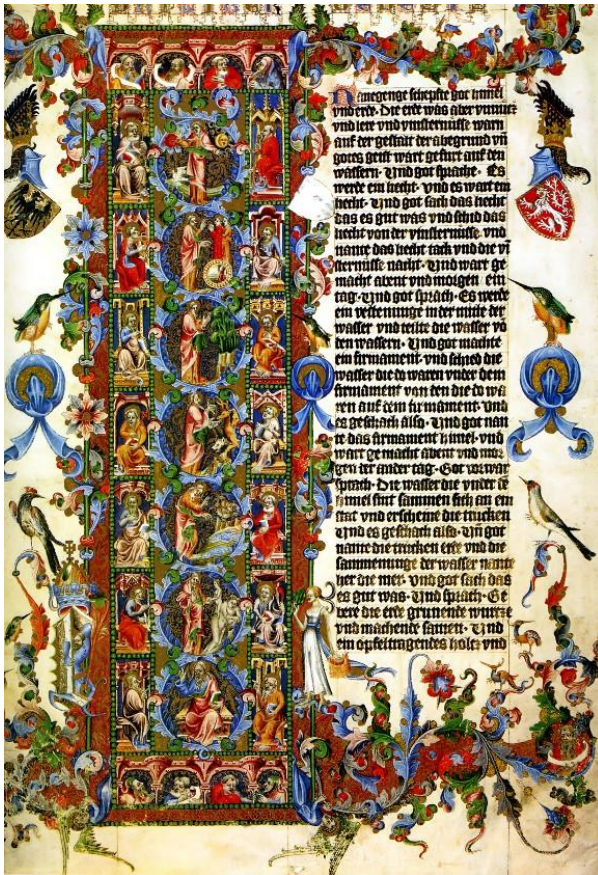 N anegenge schepfte got himel
vnd erde. Die erde was aber vnnutz
vnd lere vnd vinsternisse warn
auf der gestalt der abegrund vn̄
gotes geist wart gefurt auf den
wassern. Vnd got sprach. Es
werde ein liecht. vnd es wart ein
liecht. Vnd got sach das liecht
das es gut was vnd schid das
liecht von der vinsternisse. vnd
nante das liecht tach vnd die vī
sternisse nacht. Vnd wart ge
macht abent vnd morgen ein
tag. Vnd got sprach. Es werde
ein vestenunge in der mitte der
wasser vnd teilte die wasser vō
den wassern. Vnd got machte
ein firmament. vnd schied die
wasser die do waren vnder dem
firmament von den die do wa
ren auf dem firmament. Vnd
es geschach also. Vnd got nan
te das firmament himel. vnd
wart ge macht abent vnd mor
gen der ander tag. Got vorwar
sprach. Die wasser die vnder dē
himel sint sammen sich an ein
stat vnd erscheine die trucken
Vnd es geschach also. Vn̄ got
nante die trucken erde vnd die
sammenunge der wasser nante
her die mer. vnd got sach das
es gut was. Vnd sprach. Ge
bere die erde grunende wurcze
vnd machende samen. Vnd
ein opfeltragendes holcz vnd